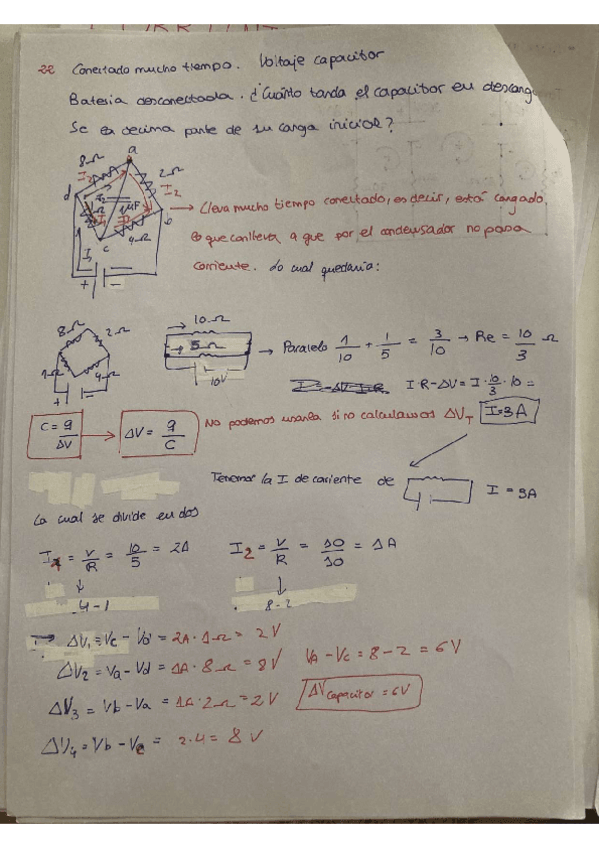 22 Conectado mucho tiempo. Voltaje capacitor
Bateria desconectada. ¿Cuánto tarda el capacitor en descarg
se en decima parte de su carga inicial?
a
8Ω
2Ω
I2
I2
d
b
1μF
1Ω
4Ω
c
I1
+ -
→ Lleva mucho tiempo conectado, es decir, está cargado,
lo que conlleva a que por el condensador no pasa
corriente. Lo cual quedaria:
8Ω
2Ω
1Ω
4Ω
+ -
10Ω
5Ω
10V
→ Paralelo 1/10 + 1/5 = 3/10 → Re = 10/3 Ω
I·R-ΔV = I·10/3·10 =
C = q/ΔV → ΔV = q/C
No podemos usarla si no calculamos ΔVT
I=3A
Tenemos la I de corriente de
I = 3A
La cual se divide en dos
I1 = V/R = 10/5 = 2A
I2 = V/R = 10/10 = 1A
4-1
8-2
→ ΔV1 = Vc - Vd = 2A·1Ω = 2V
ΔV2 = Va - Vd = 1A·8Ω = 8V
VA - Vc = 8-2 = 6V
ΔV3 = Vb - Va = 1A·2Ω = 2V
ΔV capacitor = 6V
ΔV4 = Vb - Vc = 2·4 = 8V